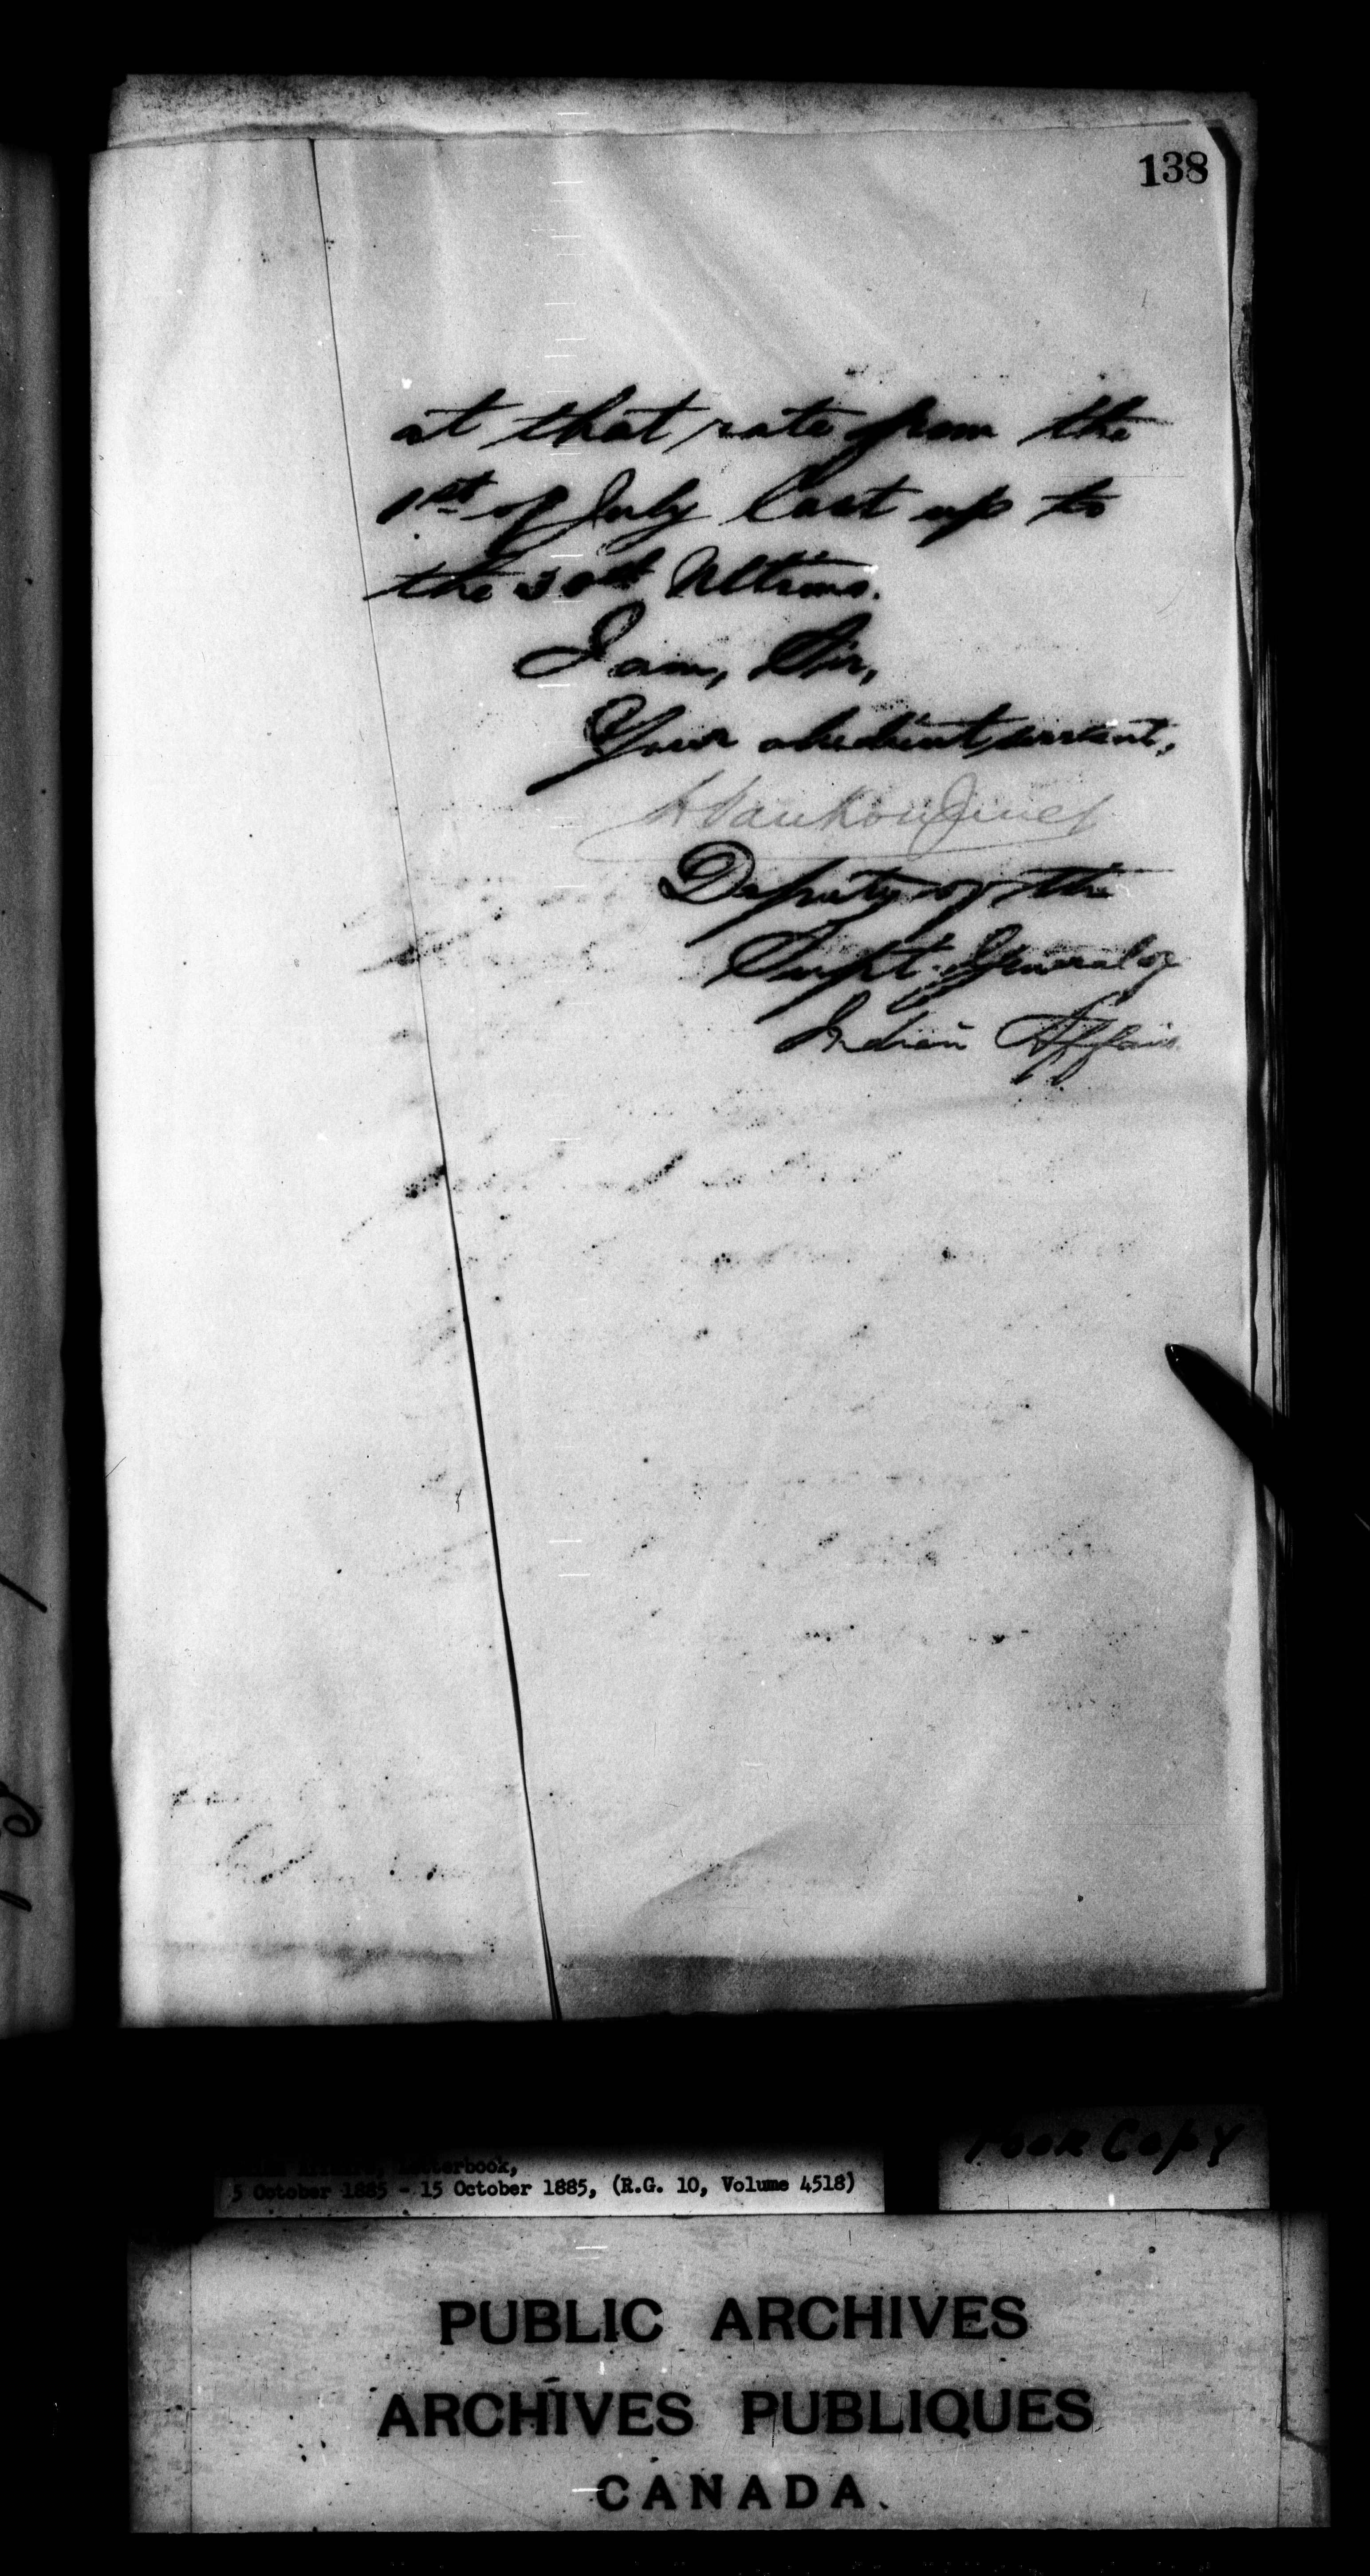 138
at that rate from the
1st of July last up to
the 30th Ultimo.
I am, Sir,
Your obedient servant,
L VanKoughnet
Deputy of the
Supt. General of
Indian Affairs
Poor Copy
Affairs, Letterbook,
5 October 1885 - 15 October 1885, (R.G. 10, Volume 4518)
PUBLIC ARCHIVES
ARCHIVES PUBLIQUES
CANADA